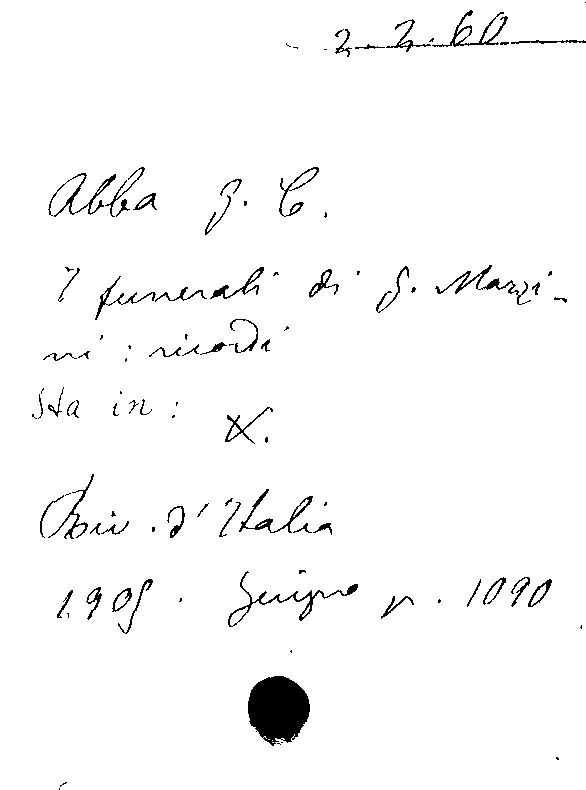 2.2.60
Abba G. C.
I funerali di G. Mazzi-
ni : ricordi
Sta in :
X.
Riv. d'Italia
1905. Giugno p. 1090